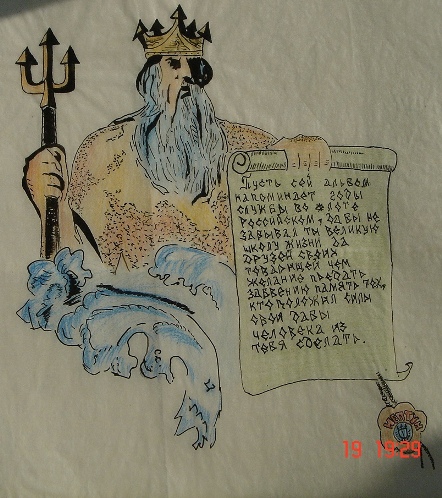 Пусть сей альбом
напоминает годы
службы во флоте
Российском, дабы не
забывал ты великую
школу жизни да
друзей своих
товарищей чем
желание предать
забвению память тех,
кто положил силы
свои дабы
человека из
тебя сделать.
НЕПТУН
19 19:29